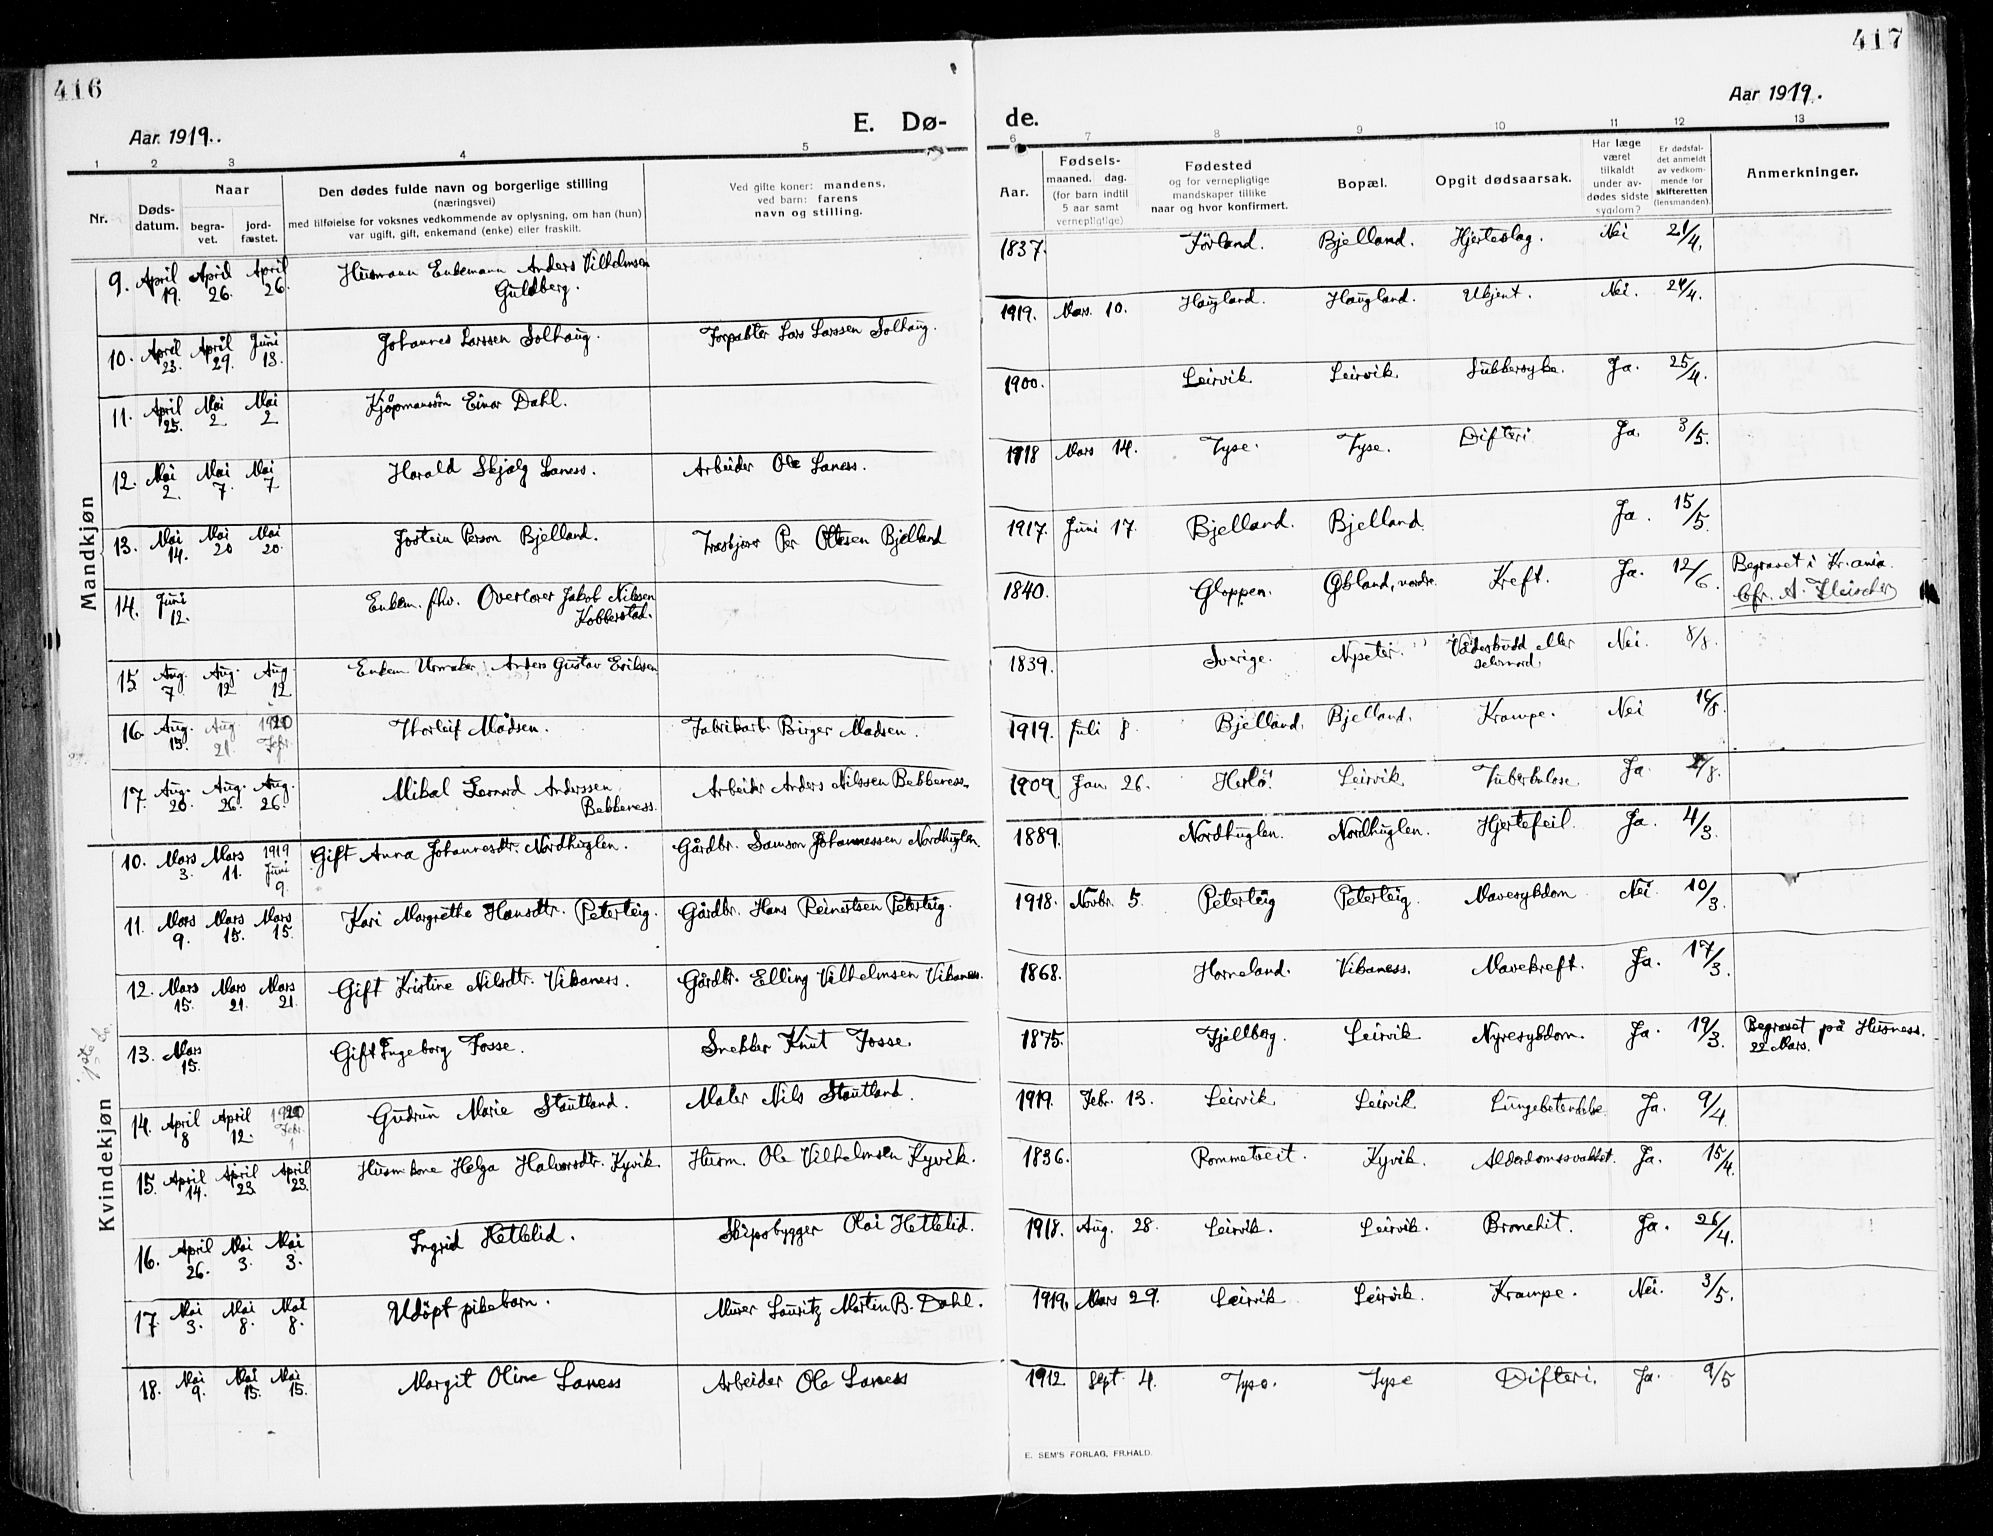 416
417
Aar 1919.
Aar 1919.
E. Dø-
de.
1 2 3 4 5 6 7 8 9 10 11 12 13
Nr.
Døds-
datum.
Naar
begra-
vet.
jord-
fæstet.
Den dødes fulde navn og borgerlige stilling
(næringsvei)
med tilføielse for voksnes vedkommende av oplysning, om han (hun)
var ugift, gift, enkemand (enke) eller fraskilt.
Ved gifte koner: mandens,
ved barn: farens
navn og stilling.
Aar.
Fødsels-
maaned. dag.
(for barn indtil
5 aar samt
vernepligtige)
Fødested
og for vernepligtige
mandskaper tillike
naar og hvor konfirmert.
Bopæl.
Opgit dødsaarsak.
Har læge
været
tilkaldt
under av-
dødes sidste
sygdom?
Er dødsfal-
det anmeldt
av vedkom-
mende for
skifteretten
(lensmanden).
Anmerkninger.
Mandkjøn
9. April 19. April 26. April 26. Husmann Enkemann Anders Vilhelmsen Guldberg. 1837. Förland. Bjelland. Hjerteslag. Nei 21/4.
10. April 23. April 29. Juni 13. Johannes Larssen Solhaug. Forpakter Lars Larssen Solhaug. 1919. Mars. 10. Haugland. Haugland. Ukjent. Nei. 24/4.
11. April 25. Mai 2 Mai 2 Kjøpmannssön Einar Dahl. 1900. Leirvik Leirvik. Subbersyke. Ja. 25/4.
12. Mai 2. Mai 7. Mai 7 Harald Skjalg Laness. Arbeider Ole Laness. 1918 Mars 14. Tyse. Tyse. Difteri Ja. 3/5.
13. Mai 14. Mai 20 Mai 20. Jostein Person Bjelland. Træskjærer Per Ottesen Bjelland 1917. Juni 17. Bjelland. Bjelland. Ja. 15/5.
14. Juni 12. Enkem. fhv. Overlærer Jakob Nilssen Kobberstad. 1840. Gloppen. nordre. Kreft. Ja. 12/6. Begravet i Kr.ania.
Cfr. A. Fleischer
15 Aug. 7. Aug. 12 Aug. 12 Enkem Urmaker Anders Gustav Erikssen 1839. Sverige. Nysæter. Vådesskudd eller selvmord. Nei. 8/8.
16. Aug. 15. Aug 21. 1920 Febr. Thorleif Madsen. Fabrikarb. Birger Madsen. 1919. Juli 8 Bjelland. Bjelland. Krampe. Nei 16/8.
17. Aug. 20. Aug. 26. Aug. 26. Mikal Lernord Anderssen Bekkeness. Arbeider Anders Nilssen Bekkeness. 1909 Jan. 26. Herlö. Leirvik Tuberkulose Ja.
1ste do.
Kvindekjøn
10. Mars 3. Mars 11. 1919 Juni 9. Gift Anna Johannesdtr. Nordhuglen. Gårdbr. Samson Johannessen Nordhuglen. 1889. Nordhuglen. Nordhuglen. Hjertefeil. Ja. 4/3.
11. Mars 9. Mars 15. Mars 15. Kari Margrethe Hansdtr. Peterteig. Gårdbr. Hans Reinertsen Peterteig. 1918. Novbr. 5. Peterteig Peterteig. Mavesykdom Nei 10/3.
12. Mars 15. Mars 21. Mars 21. Gift Kristine Nilsdtr. Vikaness. Gårdbr. Elling Vilhelmsen Vikaness. 1868. Horneland. Vikaness. Mavekreft. Ja. 17/3.
13. Mars 15. Gift Ingeborg Fosse. Snekker Knut Fosse. 1875. Fjellberg. Leirvik Nyresykdom. Ja. 19/3. Begravet på Husness. 22 Mars.
14. April 8 April 12. 1920 Febr. 1 Gudrun Marie Stautland. Maler Nils Stautland. 1919. Febr. 13. Leirvik. Leirvik Lungebetendelse Ja. 9/4.
15. April 14. April 23. April 23. Husm.kone Helga Halvorsdtr. Kyvik Husm. Ole Vilhelmsen Kyvik. 1836. Rommetveit. Kyvik. Alderdomssvakhet. Ja. 15/4.
16. April 26. Mai 3. Mai 3. Ingrid Hetlelid. Skipsbygger Olai Hetlelid. 1918. Aug. 28. Leirvik. Leirvik. Bronchit. Ja. 26/4.
17. Mai 3. Mai 8. Mai 8. Udöpt pikebarn. Murer Lauritz Martin B. Dahl. 1919. Mars 29. Leirvik Leirvik. Krampe. Nei. 3/5.
18. Mai 9. Mai 15. Mai 15. Margit Oline Laness Arbeider Ole Laness 1912 Sept. 4. Tyse. Tyse Difteri. Ja. 9/5
E. SEM'S FORLAG, FR.HALD.